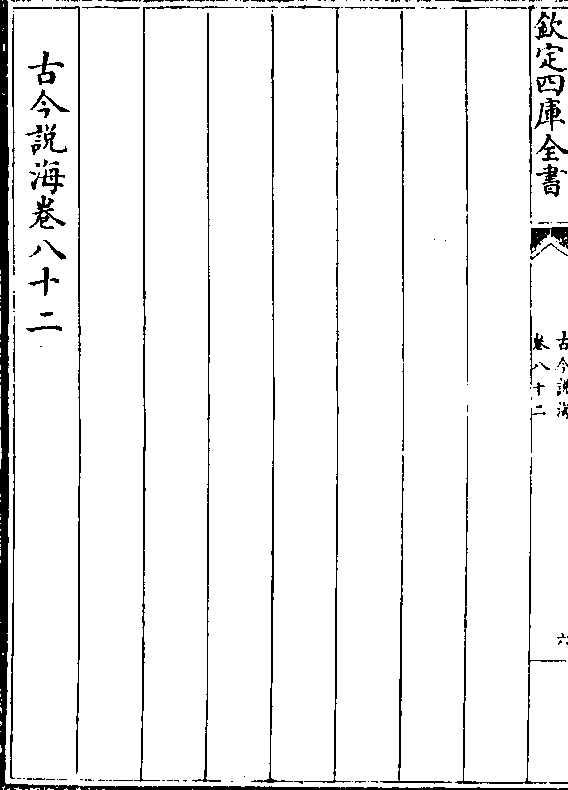 欽定四庫全書
古今説海
卷八十二
六
古今説海卷八十二